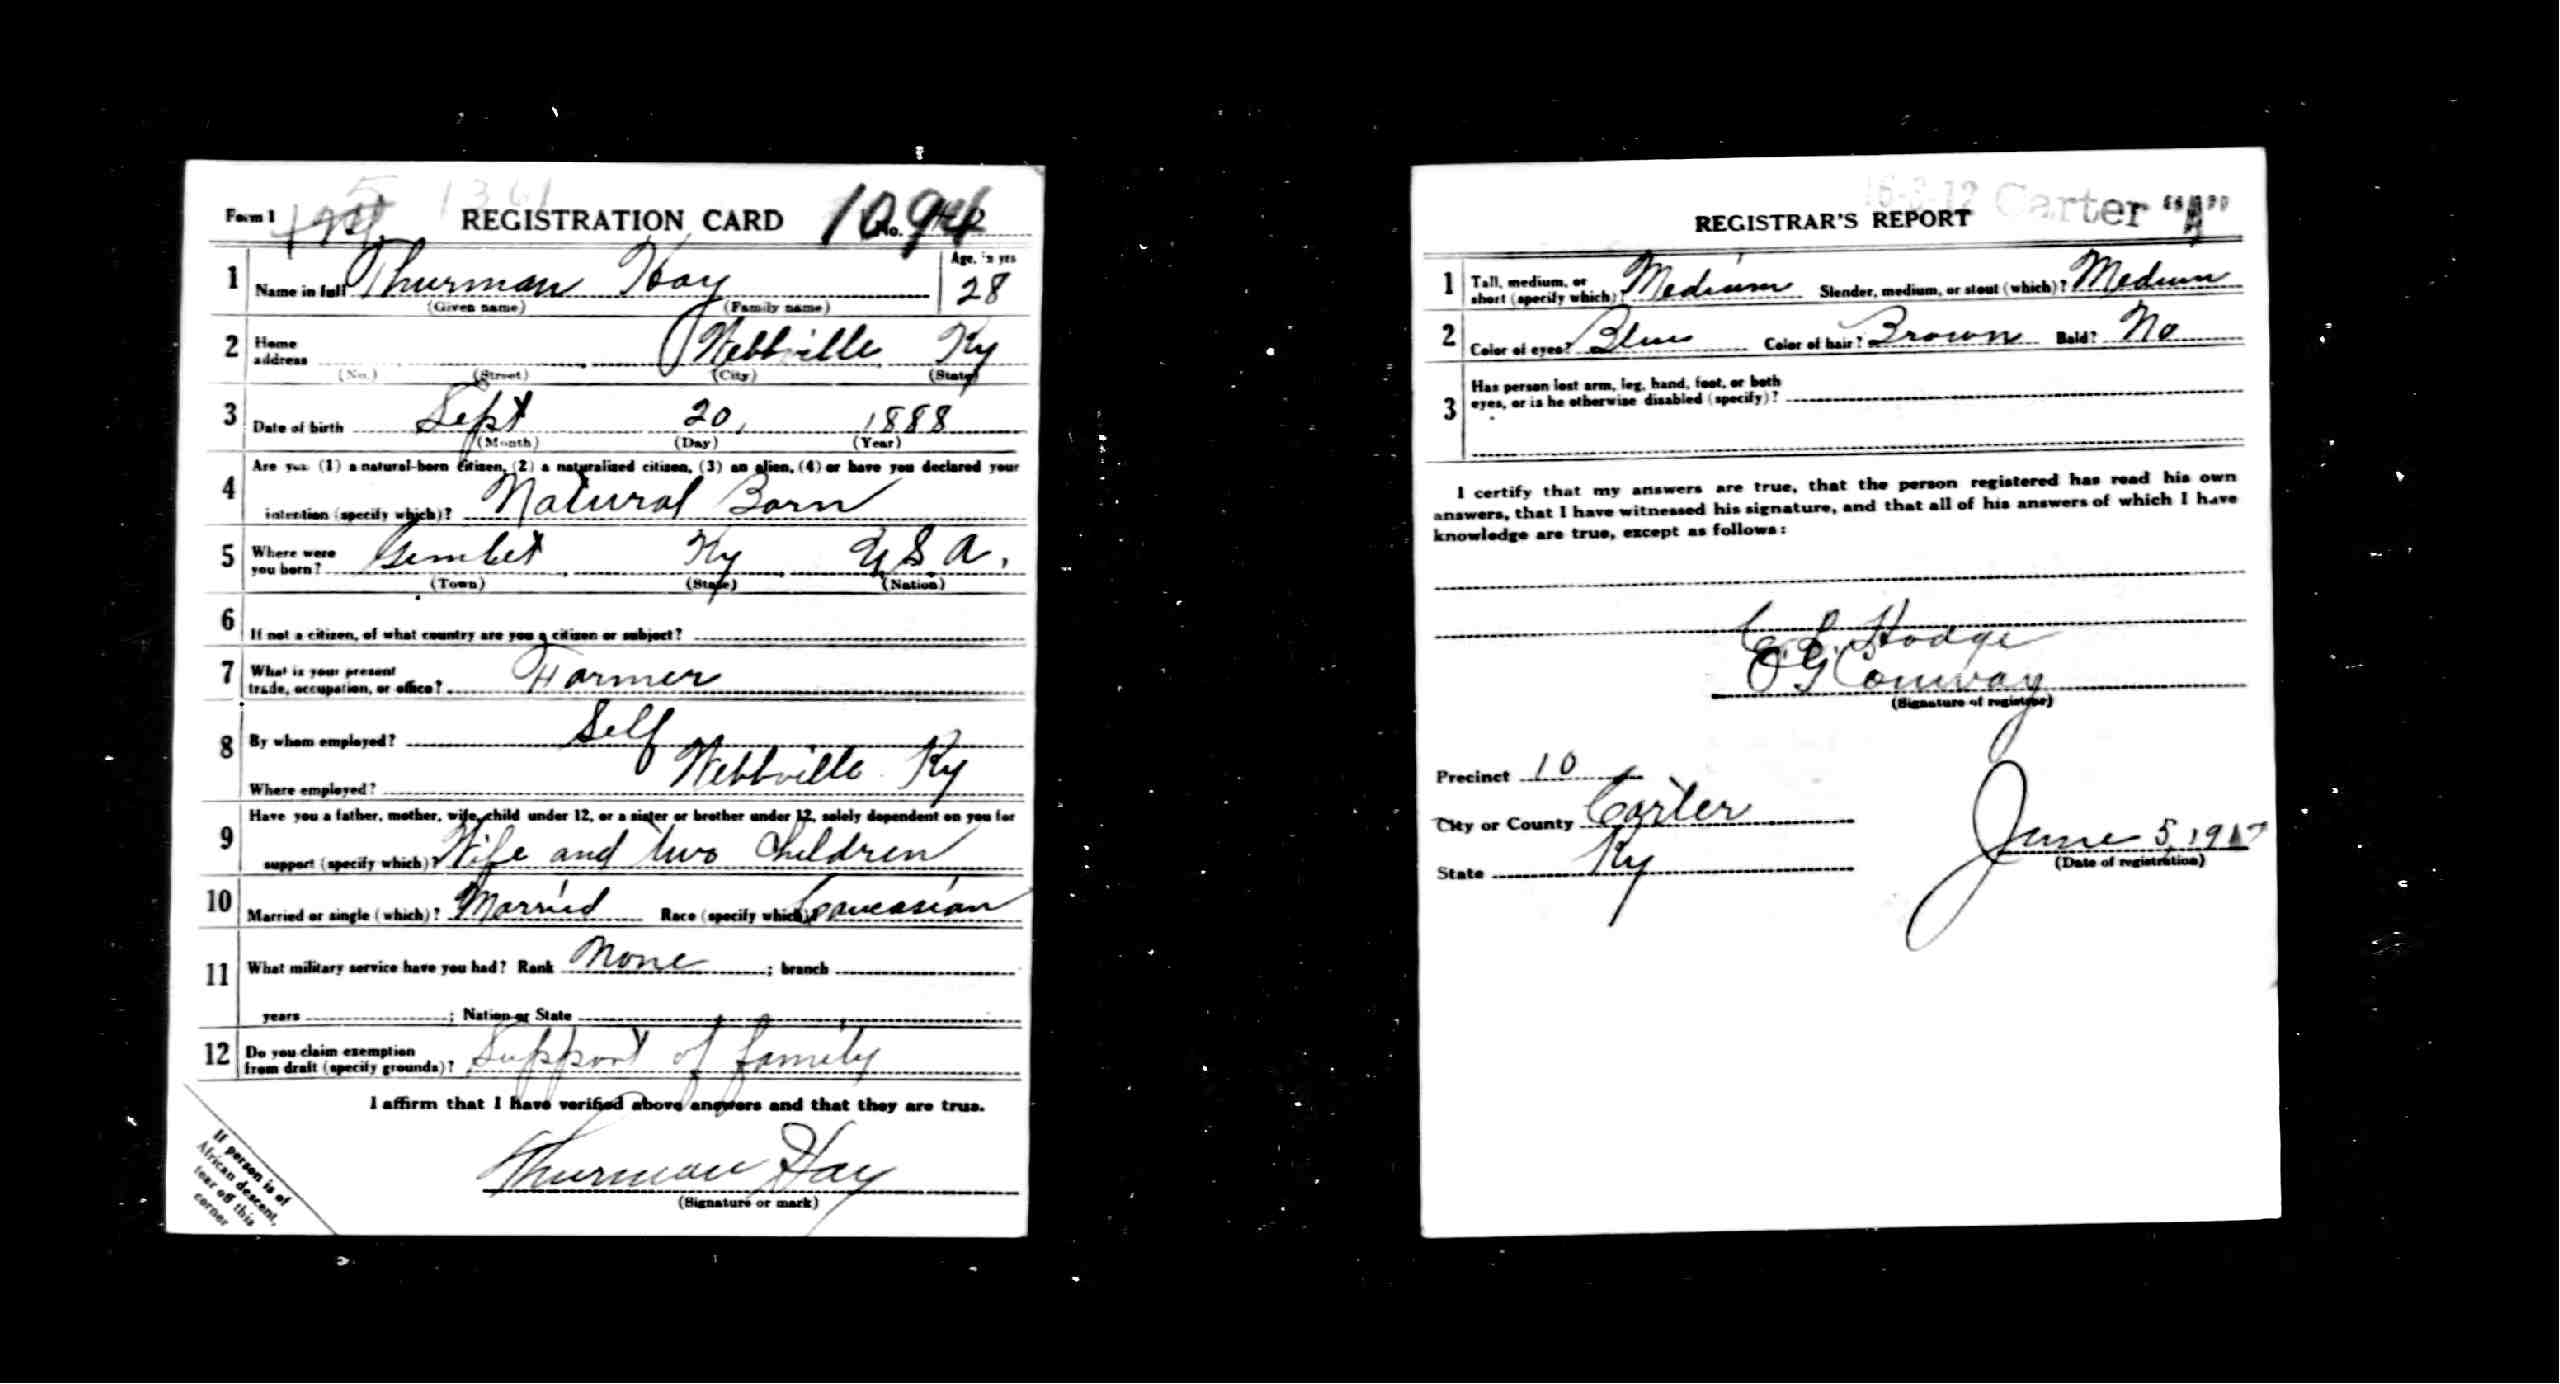 Form 1 REGISTRATION CARD No.
1 Name in full Thurman Hay Age, in yrs 28
(Given name) (Family name)
2 Home address Webbville Ky
(No.) (Street) (City) (State)
3 Date of birth Sept 20, 1888
(Month) (Day) (Year)
4 Are you (1) a natural-born citizen, (2) a naturalized citizen, (3) an alien, (4) or have you declared your
intention (specify which)? Natural Born
5 Where were you born? Gimlet Ky U.S.A.
(Town) (State) (Nation)
6 If not a citizen, of what country are you a citizen or subject?
7 What is your present trade, occupation, or office? Farmer
8 By whom employed? Self
Where employed? Webbville Ky
9 Have you a father, mother, wife, child under 12, or a sister or brother under 12, solely dependent on you for
support (specify which)? Wife and two Children
10 Married or single (which)? Married Race (specify which)? Caucasian
11 What military service have you had? Rank None ; branch
years ; Nation or State
12 Do you claim exemption from draft (specify grounds)? Support of family
I affirm that I have verified above answers and that they are true.
Thurman Hay
(Signature or mark)
If person is of
African descent,
tear off this
corner
Carter "A"
REGISTRAR'S REPORT
1 Tall, medium, or short (specify which)? Medium Slender, medium, or stout (which)? Medium
2 Color of eyes? Blue Color of hair? Brown Bald? No
3 Has person lost arm, leg, hand, foot, or both
eyes, or is he otherwise disabled (specify)?
I certify that my answers are true, that the person registered has read his own
answers, that I have witnessed his signature, and that all of his answers of which I have
knowledge are true, except as follows:
C. L. Hodge
O G Conway
(Signature of registrar)
Precinct 10
City or County Carter
State Ky
June 5, 1917
(Date of registration)